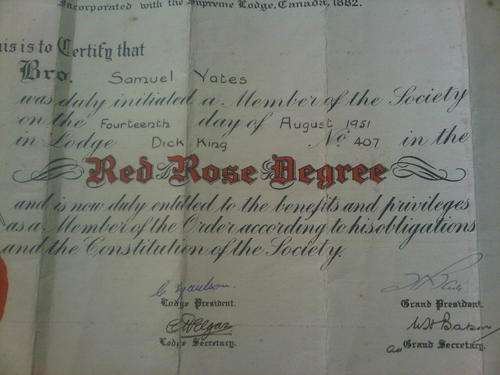 Incorporated with the Supreme Lodge, Canada, 1882.
This is to Certify that
Bro. Samuel Yates
was duly initiated a Member of the Society
on the Fourteenth day of August 1951
in Lodge Dick King No 407 in the
Red Rose Degree
and is now duly entitled to the benefits and privileges
as a Member of the Order according to his obligations
and the Constitution of the Society.
Lodge President. Grand President.
Lodge Secretary. Grand Secretary.